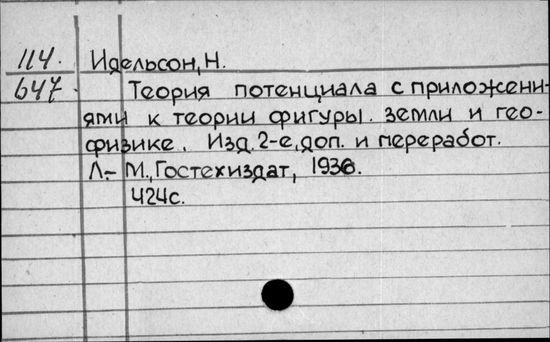 114. Идельсон, Н.
647. Теория потенциала с приложени-
ями к теории фигуры земли и гео-
физике. Изд. 2-е, доп. и переработ.
Л.-М., Гостехиздат, 1936.
424с.